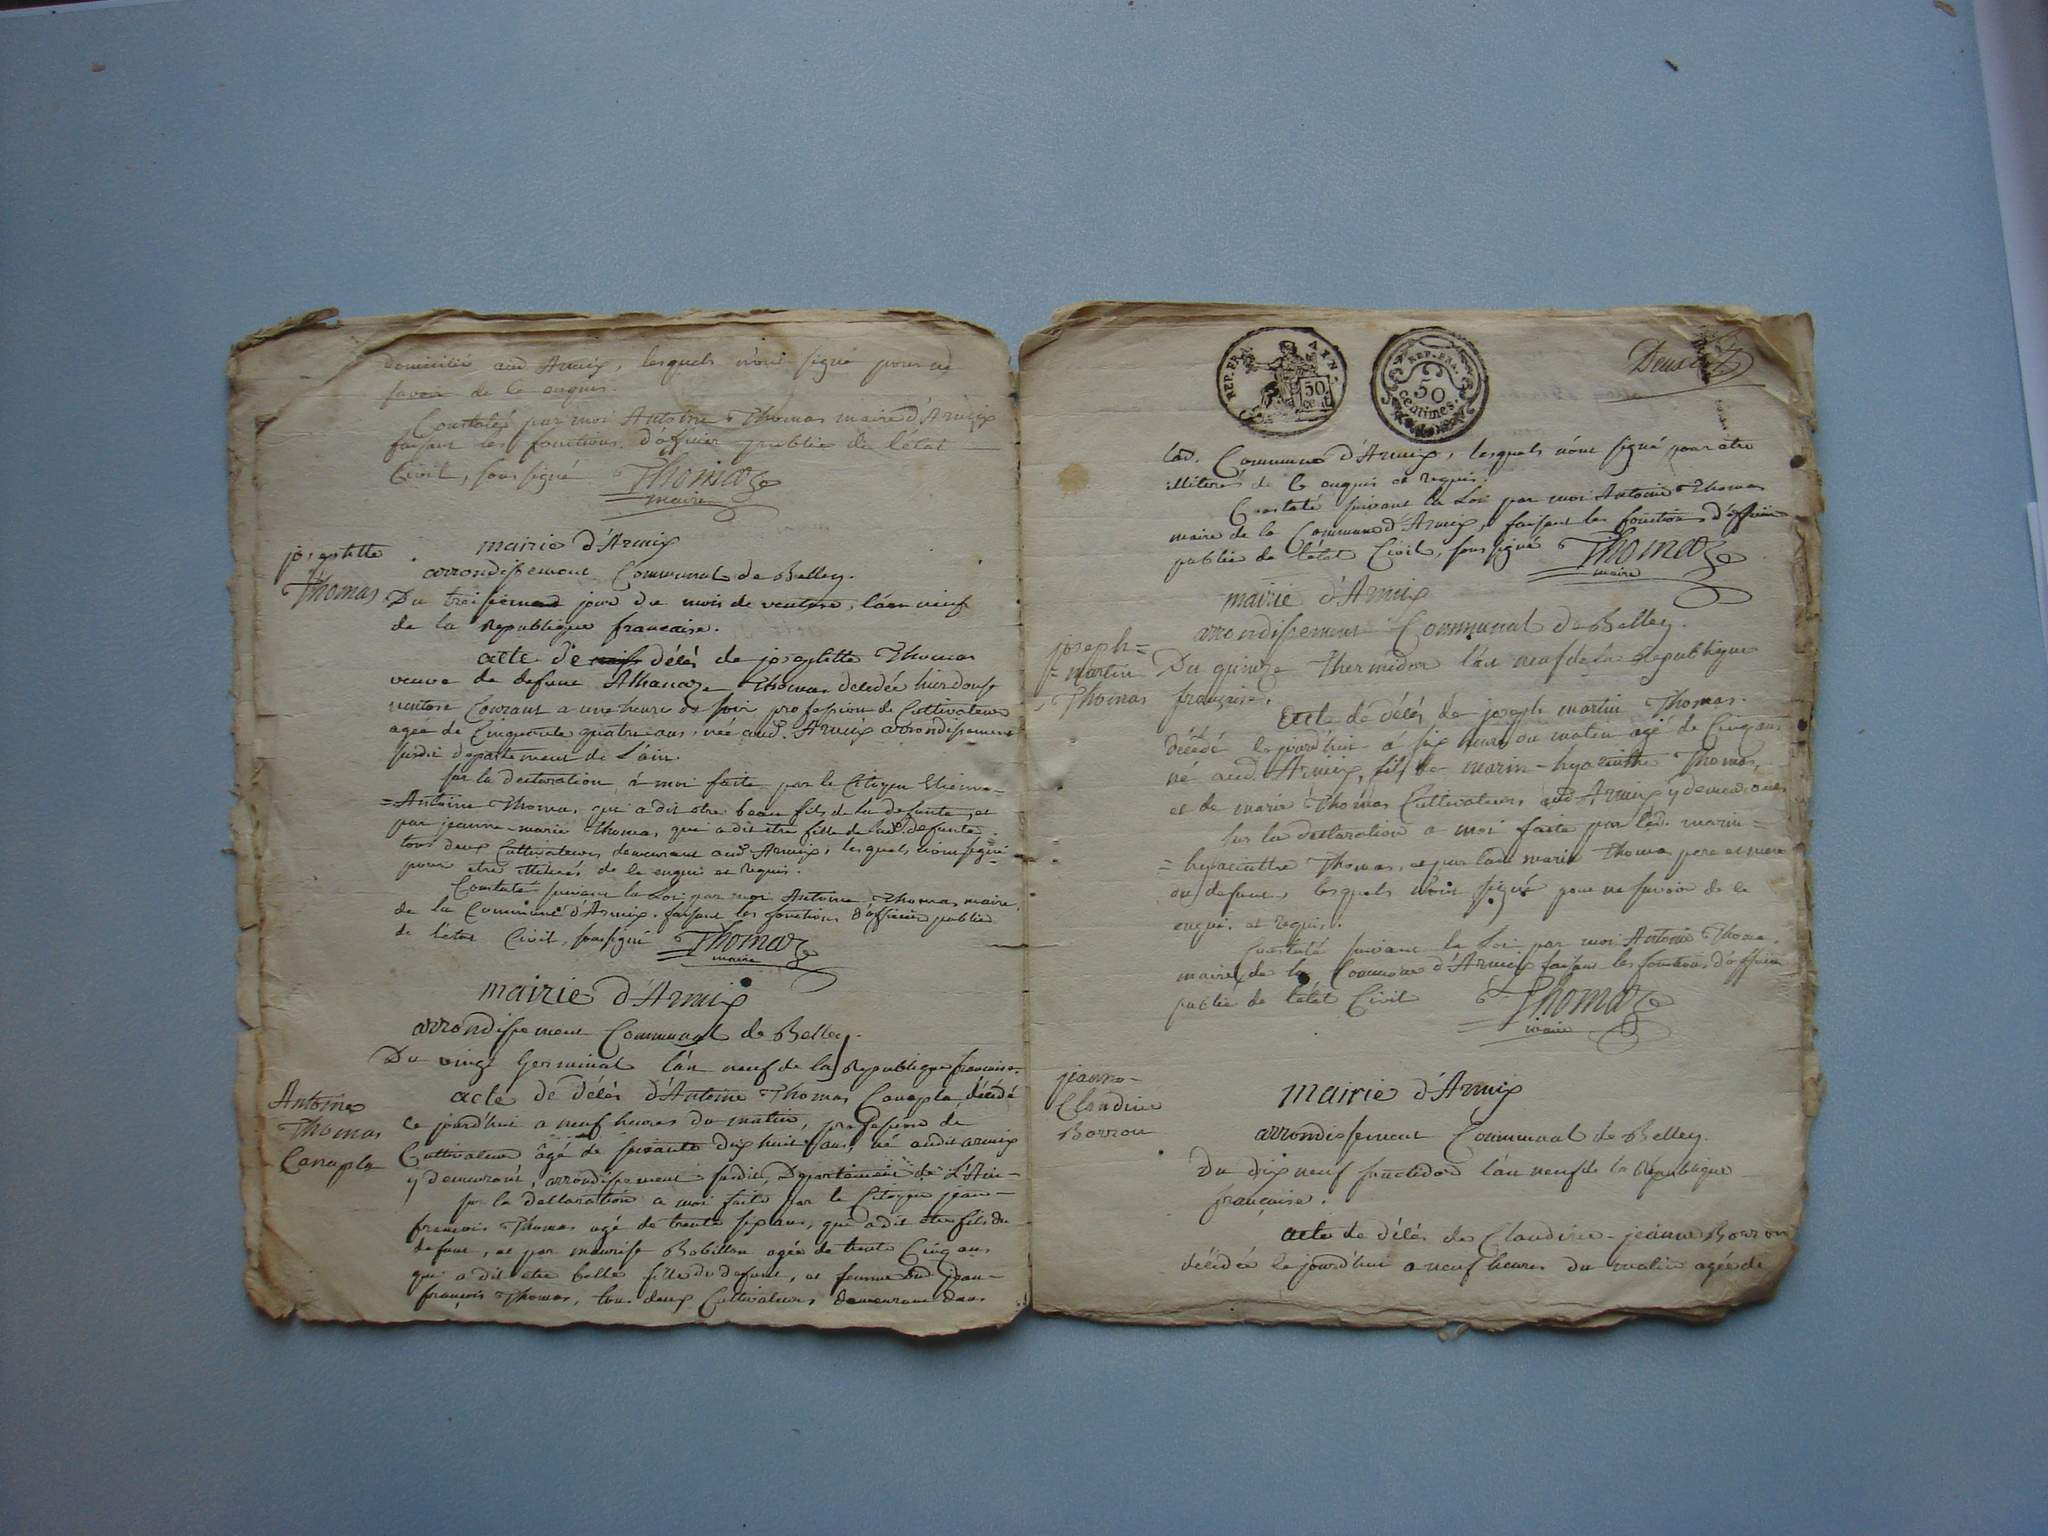 domicilié aud Armix, lesquels n'ont signé pour ne
savoir de le enquis.
Constaté par moi Antoine Thomas maire d'Armix
faisant les fonctions d'officier public de l'état
Civil, soussigné Thomas
maire
josephtte
Thomas
mairie d'Armix
arrondissement Communal de Belley.
Du treisieme jour du mois de ventose, l'an neuf
de la Republique francaise.
acte de décés de josephtte Thomas
veuve de defunt Athanaze Thomas décédée hier douse
ventose Courant a une heure de soir profession de Cultivateur
agée de Cinquante quatre ans, née aud. Armix arrondissement
susdit département de L'ain.
sur la declaration à moi faite par le Citoyen Etienne=
=Antoine Thomas, qui a dit etre beau fils de la defunte, et
par jeanne-marie Thomas, qui a dit etre fille de lad. defunte.
tous deux Cultivateurs demeurant aud Armix, lesquels n'ont signé
pour etre illiterés de le enquis et requis.
Constaté suivant la Loi par moi Antoine Thomas maire
de la Commune d'Armix. faisant les fonctions d'officier public
de l'état Civil, soussigné Thomas
maire
mairie d'Armix
arrondissement Communal de Belley.
Du vingt Germinal l'an neuf de la Republique francaise.
Antoine
Thomas
Canapla
acte de décés d'Antoine Thomas Canapla, décédé
ce jourd'hui a neuf heures du matin, profession de
Cultivateur âgé de soixante dix huit ans, né audit armix
y demeurant, arrondissement susdit, Département de L'Ain-
sur la declaration a moi faite par le Citoyen jean-
françois Thomas agé de trente six ans, qui a dit etre fils du
defunt, et par maurise Bobillon agée de trente Cinq ans
qui a dit etre belle fille du defunt, et femme dud jean-
françois Thomas, tous deux Cultivateurs demeurant dans
REP. FRA. AIN.
50
cent.
REP. FRA.
50
centimes.
lad. Commune d'Armix, lesquels n'ont signé pour etre
illiterés de le enquis et requis.
Constaté suivant la Loi par moi Antoine Thomas
maire de la Commune d'Armix, faisant les fonctions d'officier
public de l'état Civil, soussigné Thomas
maire
mairie d'Armix
arrondissement Communal de Belley.
joseph=
=martin
Thomas
Du quinze thermidor l'an neuf de la Republique
française.
acte de décés de joseph martin Thomas.
décédé le jourd'hui à six heures du matin agé de Cinq ans
né aud. Armix, fils de marin-hyacinthe Thomas,
et de marie Thomas Cultivateurs aud Armix y demeurants
sur la declaration a moi faite par led. marin=
=hyacinthe Thomas, et par lad marie Thomas pere et mere
du defunt, lesquels n'ont signé pour ne savoir de le
enquis et requis.
Constaté suivant la Loi par moi Antoine Thomas
maire de la Commune d'Armix faisant les fonctions d'officier
public de l'état Civil Thomas
maire
jeanne-
Claudine
Borron
mairie d'Armix
arrondissement Communal de Belley.
Du dix neuf fructidor l'an neuf de la République
française.
acte de décés de Claudine-jeanne Borron
décédée le jourd'hui a neuf heures du matin agée de